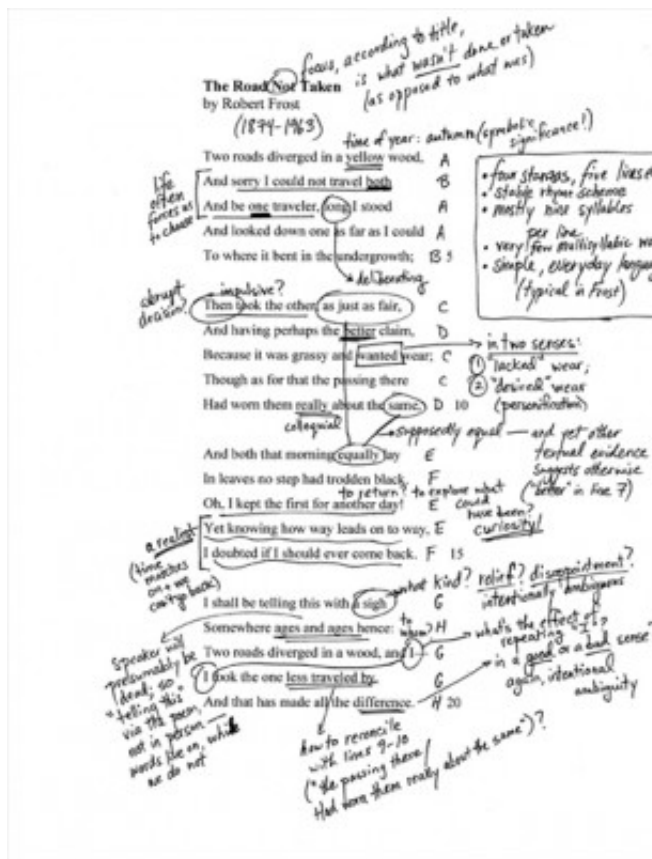 focus, according to title,
is what wasn't done or taken
(as opposed to what was)
The Road Not Taken
by Robert Frost
(1874-1963)
time of year: autumn (symbolic
significance!)
Two roads diverged in a yellow wood, A
And sorry I could not travel both B
And be one traveler, long I stood A
And looked down one as far as I could A
To where it bent in the undergrowth; B 5
life
often
forces us
to choose
• four stanzas, five lines
• stable rhyme scheme
• mostly nine syllables
per line
• very few multisyllabic
• simple, everyday
(typical in Frost)
deliberating
abrupt
decision!
impulsive?
Then took the other, as just as fair, C
And having perhaps the better claim, D
Because it was grassy and wanted wear; C
Though as for that the passing there C
Had worn them really about the same, D 10
colloquial
in two senses:
1 "lacked" wear;
2 "desired" wear
(personification)
supposedly equal — and yet other
textual evidence
suggests otherwise
("better" in line 7)
And both that morning equally lay E
In leaves no step had trodden black. F
to return? to explore what
could
have been?
curiosity!
Oh, I kept the first for another day! E
Yet knowing how way leads on to way, E
I doubted if I should ever come back. F 15
a realist
(time
marches
on + we
can't go back)
what kind? relief? disappointment?
intentionally ambiguous
I shall be telling this with a sigh G
Somewhere ages and ages hence: to whom? H
Two roads diverged in a wood, and I— G
I took the one less traveled by, G
And that has made all the difference. H 20
what's the effect of
repeating "I"?
in a good or a bad sense?
again, intentional
ambiguity
speaker will
presumably be
dead; so
"telling this"
via the poem,
not in person —
words live on, while
we do not
how to reconcile
with lines 9-10
("the passing there /
Had worn them really about the same")?